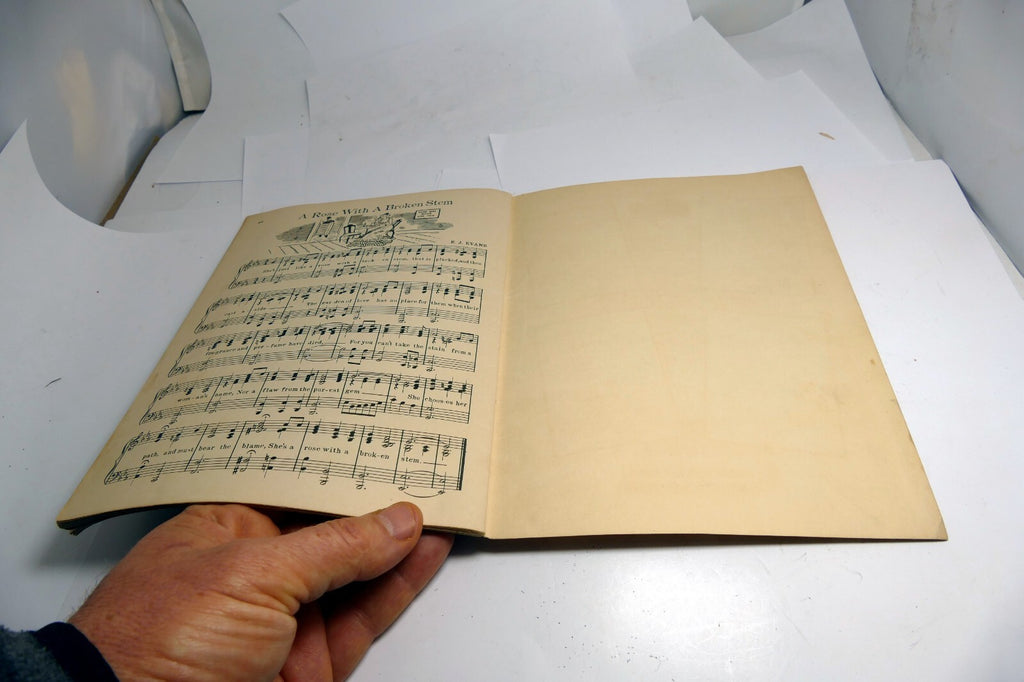 A Rose With A Broken Stem
E. J. EVANS
like a rose with a brok-en stem, that is plucked and then
The gar-den of love has no place for them when their
fragrance and per-fume have died, For you can't take the stain from a
wom-an's name, Nor a flaw from the pur-est gem She choos-es her
path, and must bear the blame, She's a rose with a brok-en stem.